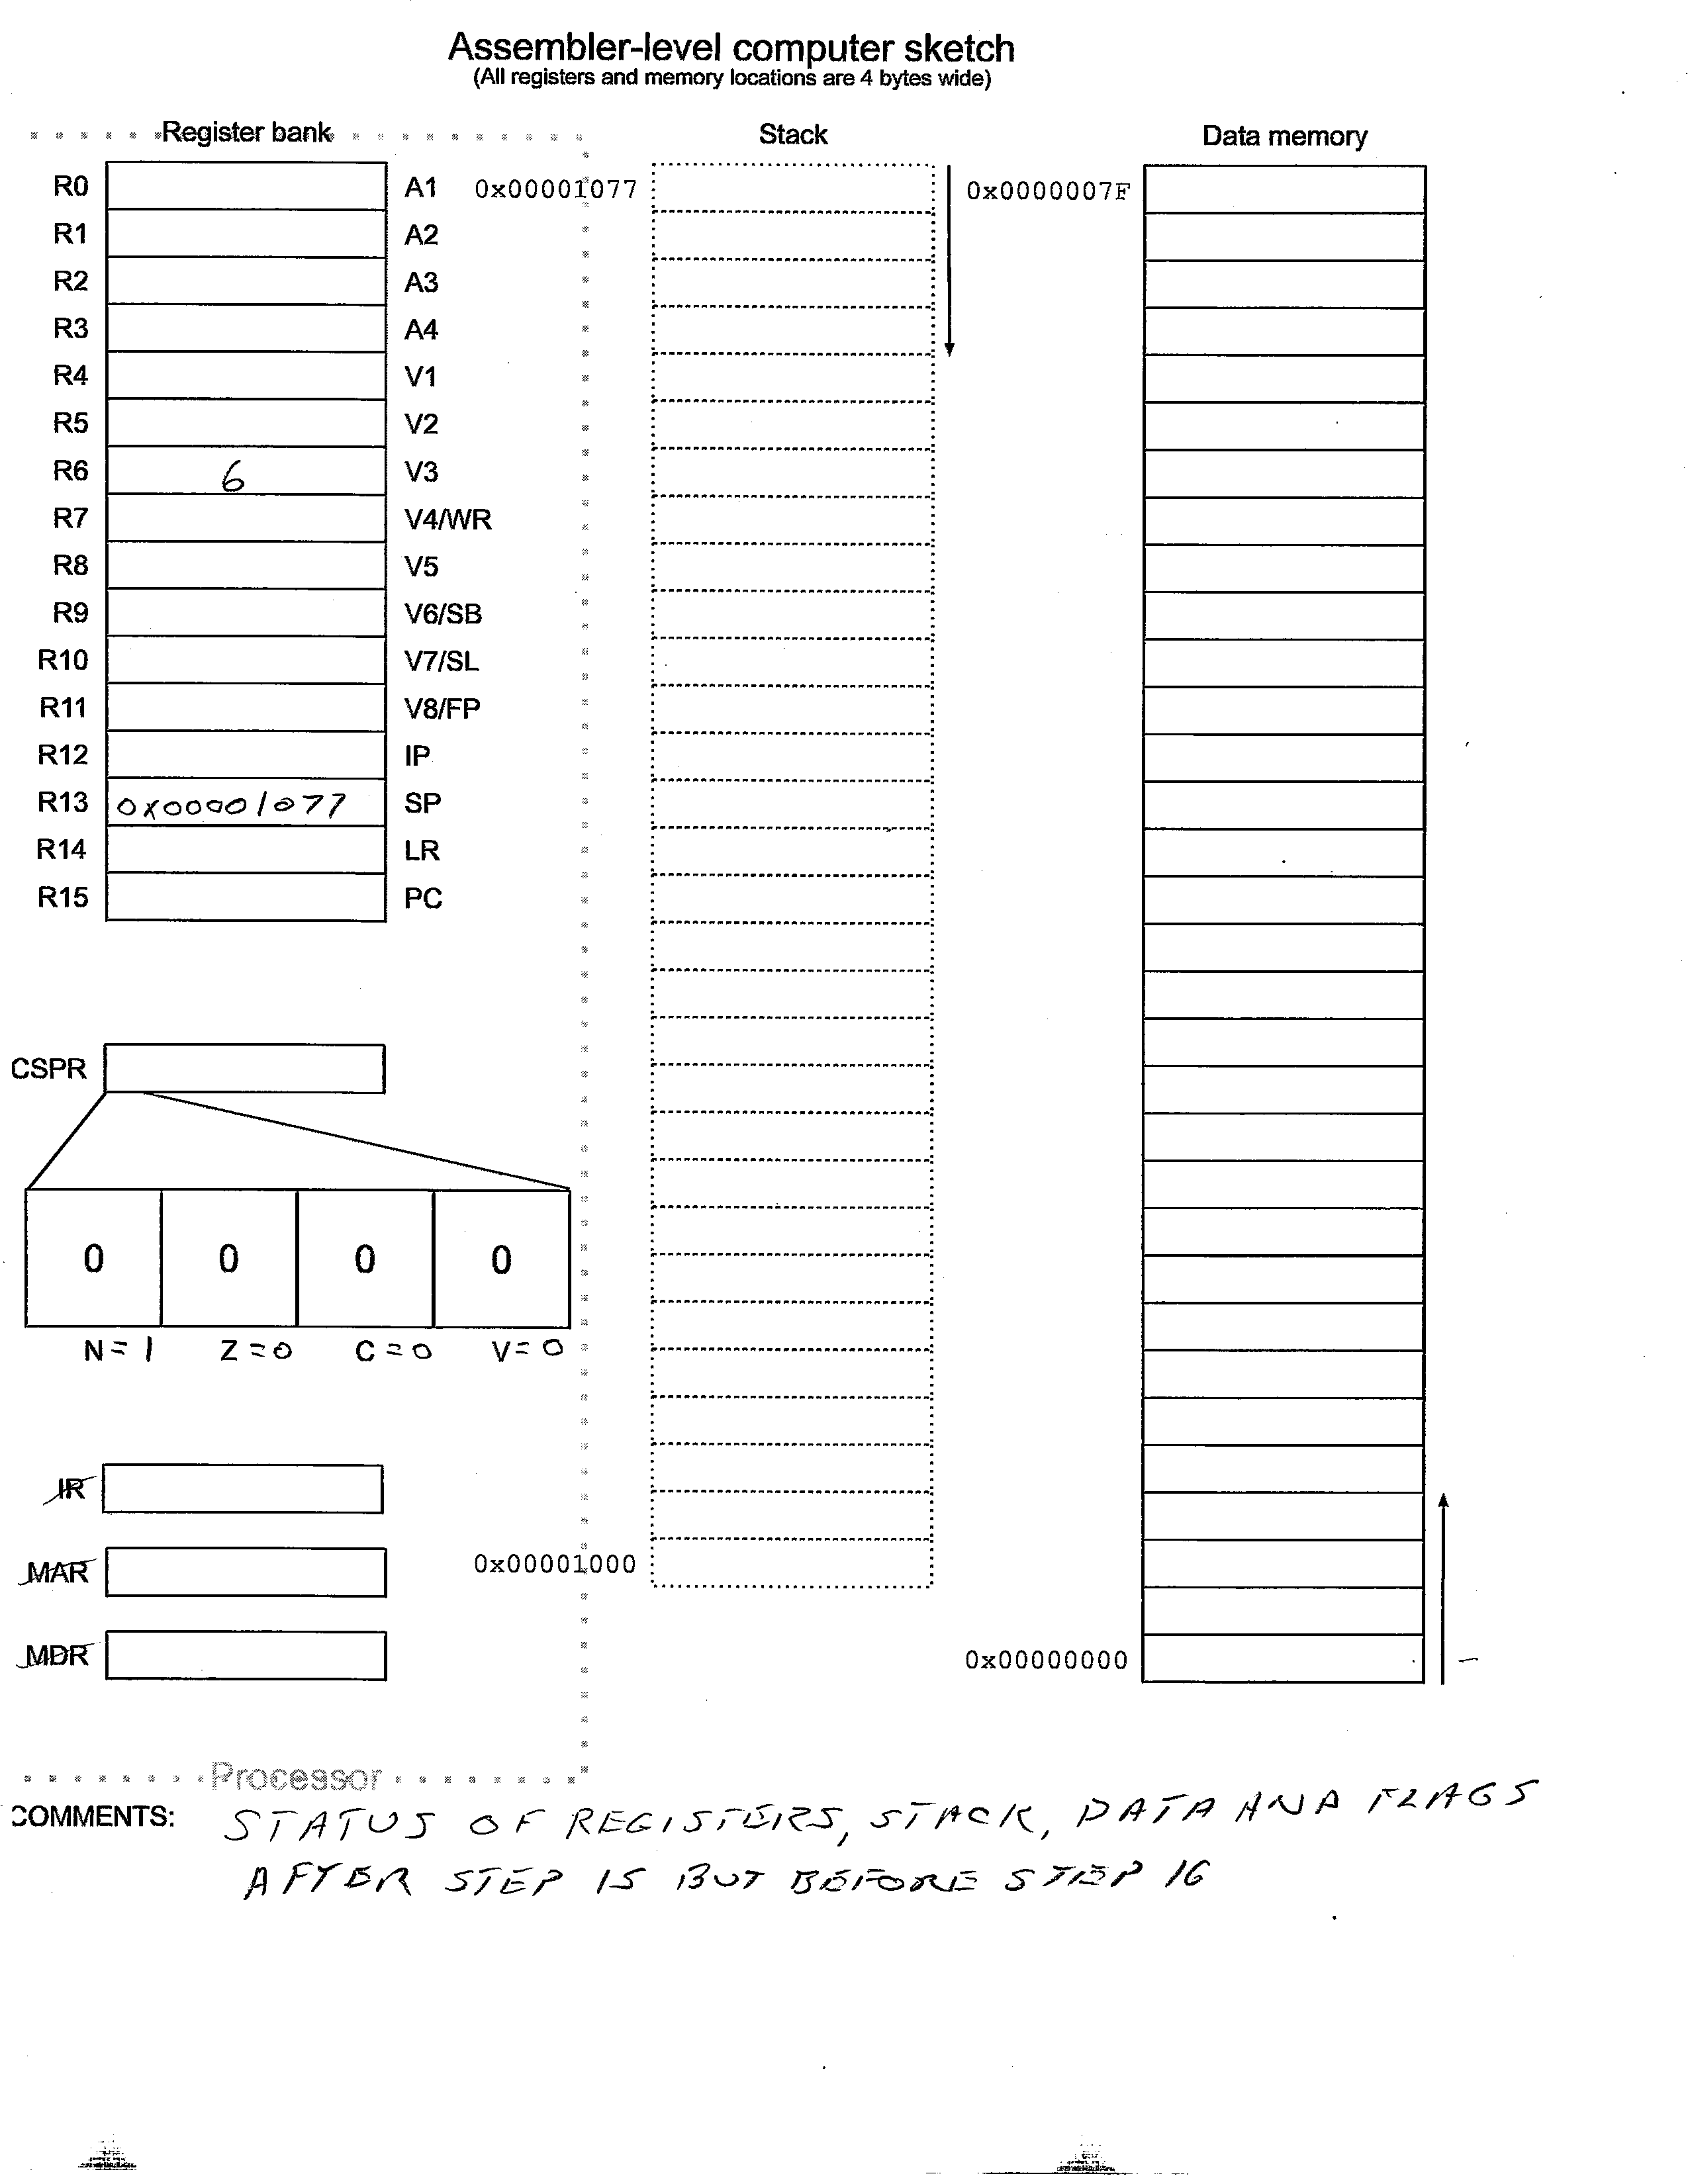 Assembler-level computer sketch
(All registers and memory locations are 4 bytes wide)
Register bank
Stack
Data memory
R0 A1
R1 A2
R2 A3
R3 A4
R4 V1
R5 V2
R6 6 V3
R7 V4/WR
R8 V5
R9 V6/SB
R10 V7/SL
R11 V8/FP
R12 IP
R13 0x00001077 SP
R14 LR
R15 PC
0x00001077
0x0000007F
CSPR
0 0 0 0
N=1 Z=0 C=0 V=0
IR
MAR
MDR
0x00001000
0x00000000
Processor
COMMENTS: STATUS OF REGISTERS, STACK, DATA AND FLAGS
AFTER STEP 15 BUT BEFORE STEP 16